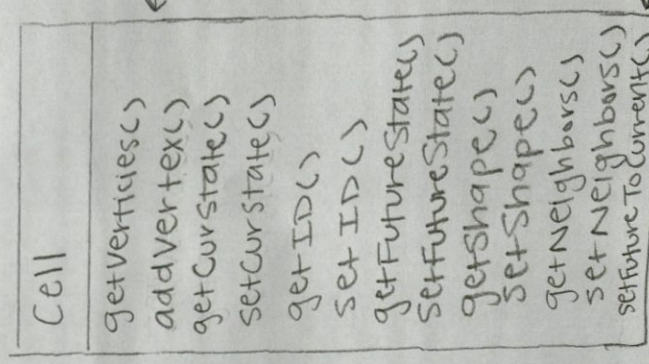 Cell
getVerticies()
addVertex()
getCurState()
setCurState()
getID()
setID()
getFutureState()
setFutureState()
getShape()
setShape()
getNeighbors()
setNeighbors()
setFutureToCurrent()